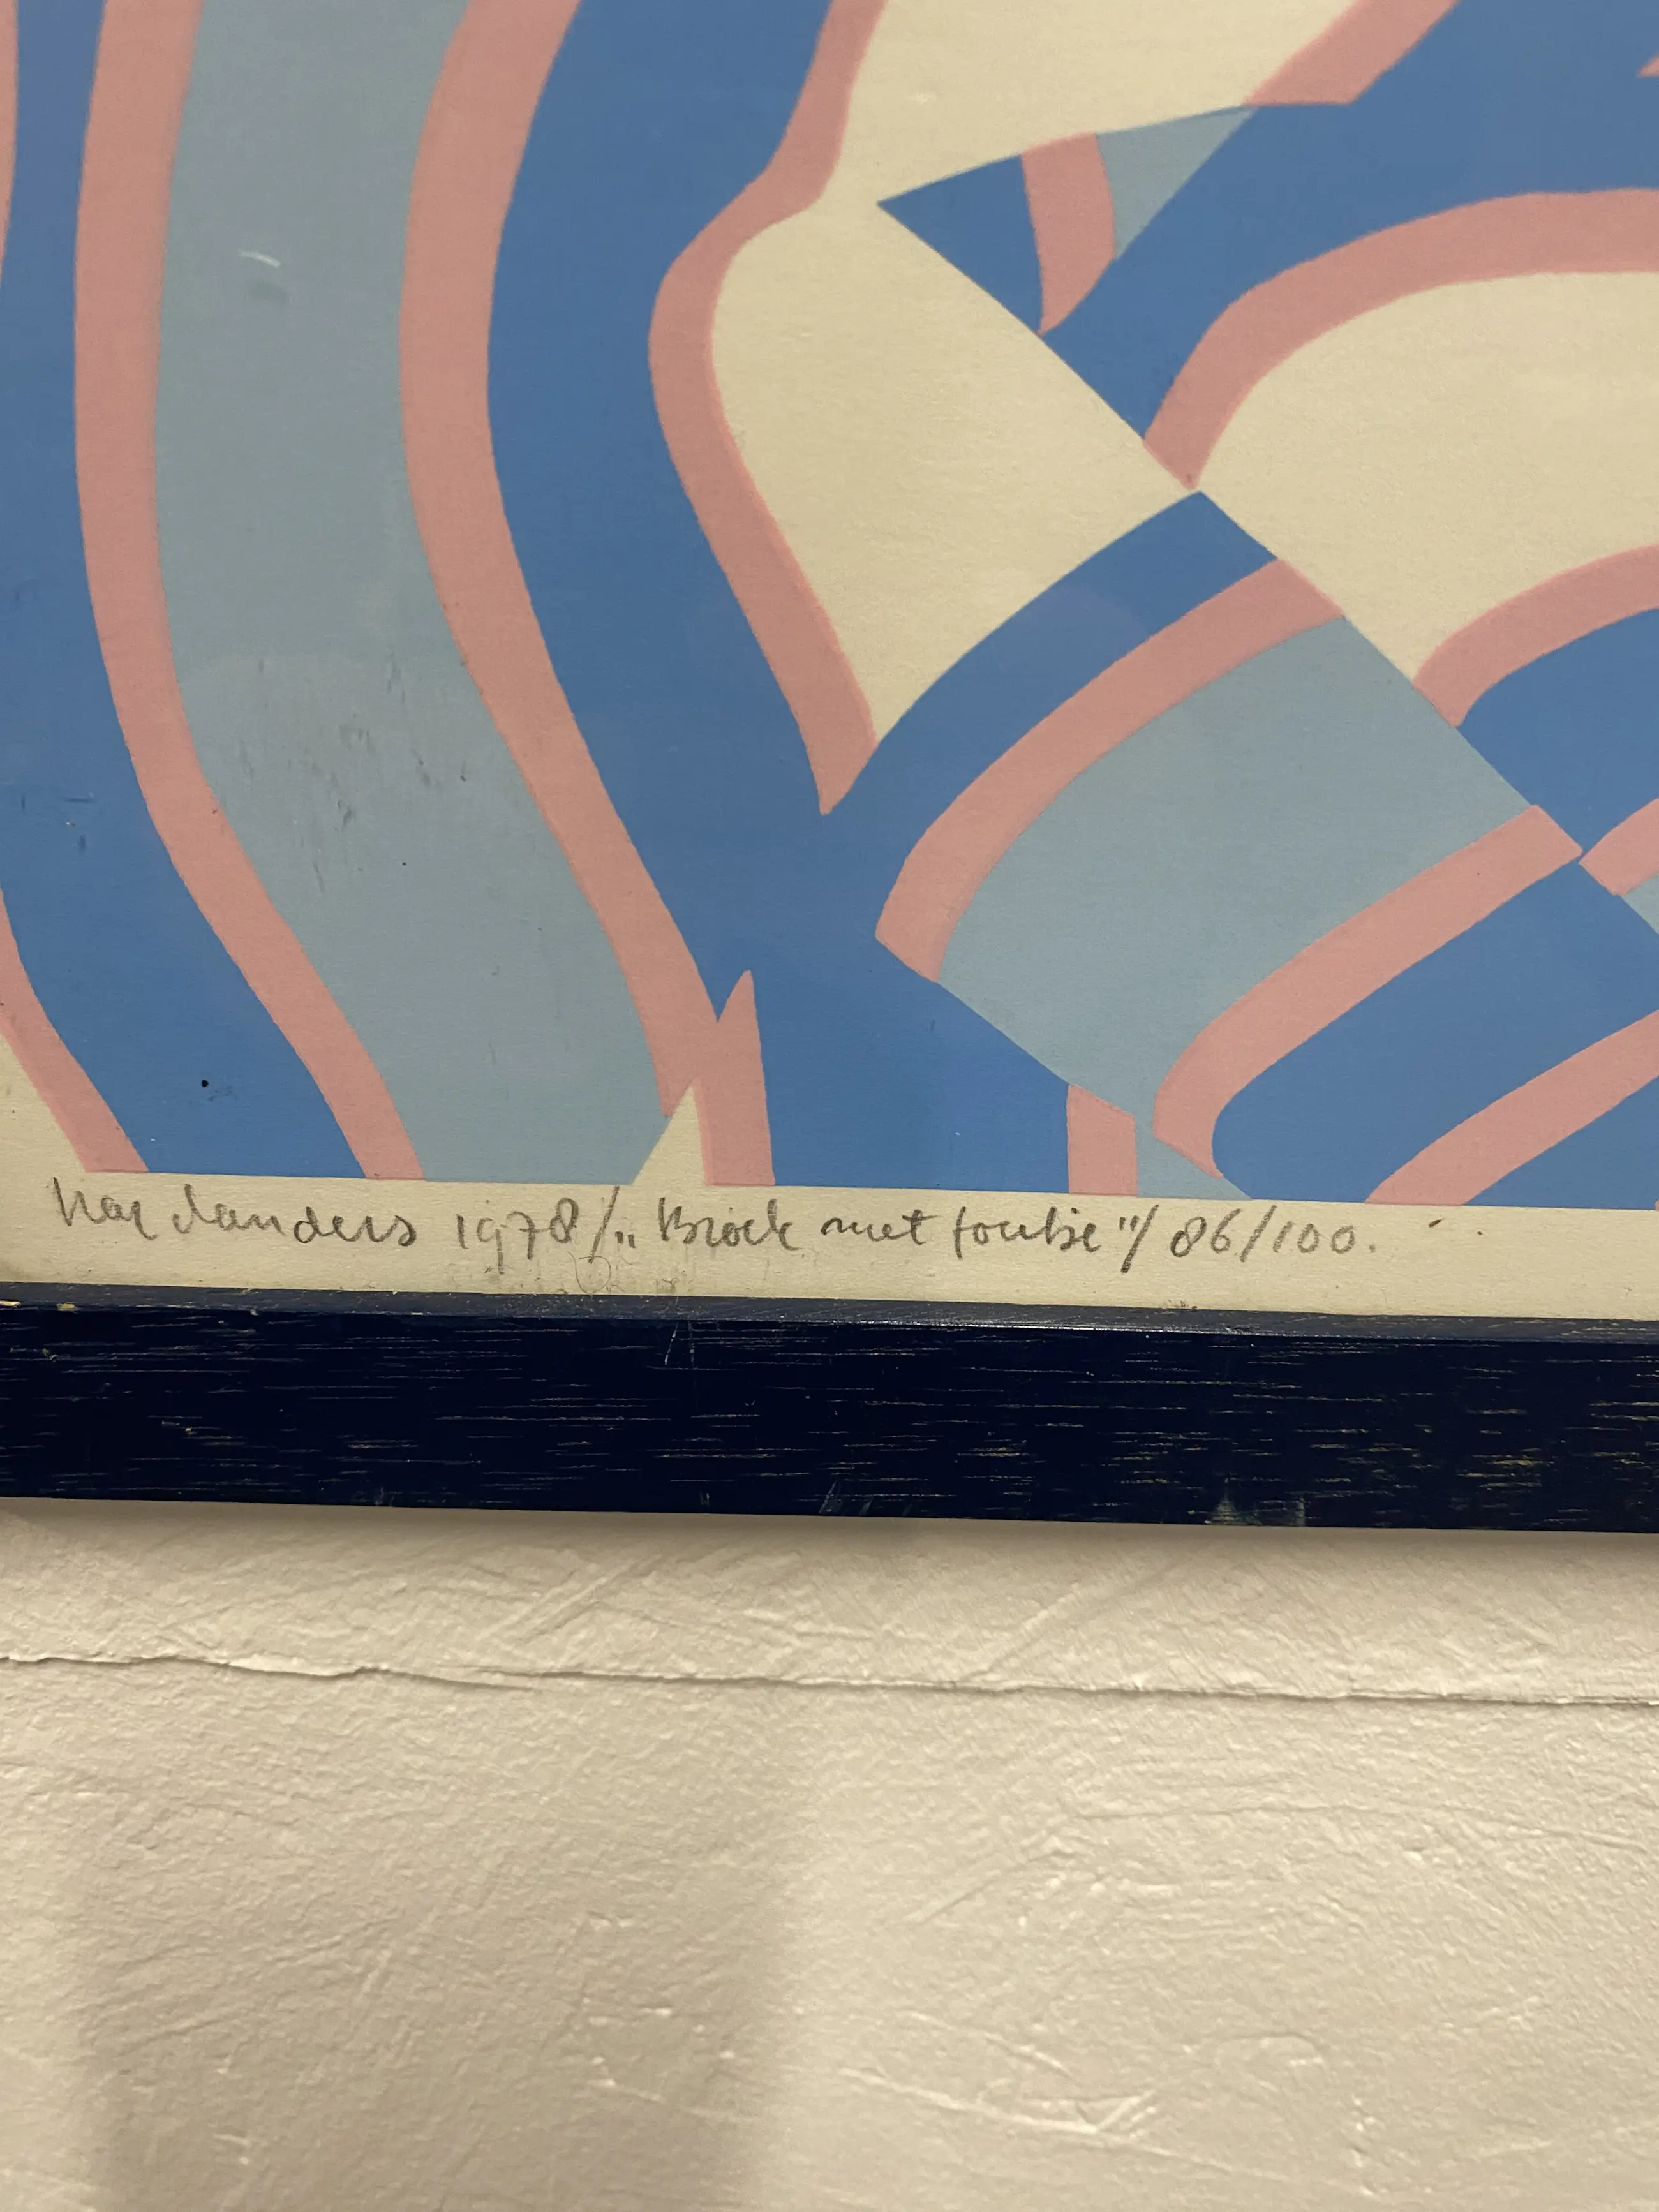 Har Sanders 1978/„Broek met foutje"/ 86/100.